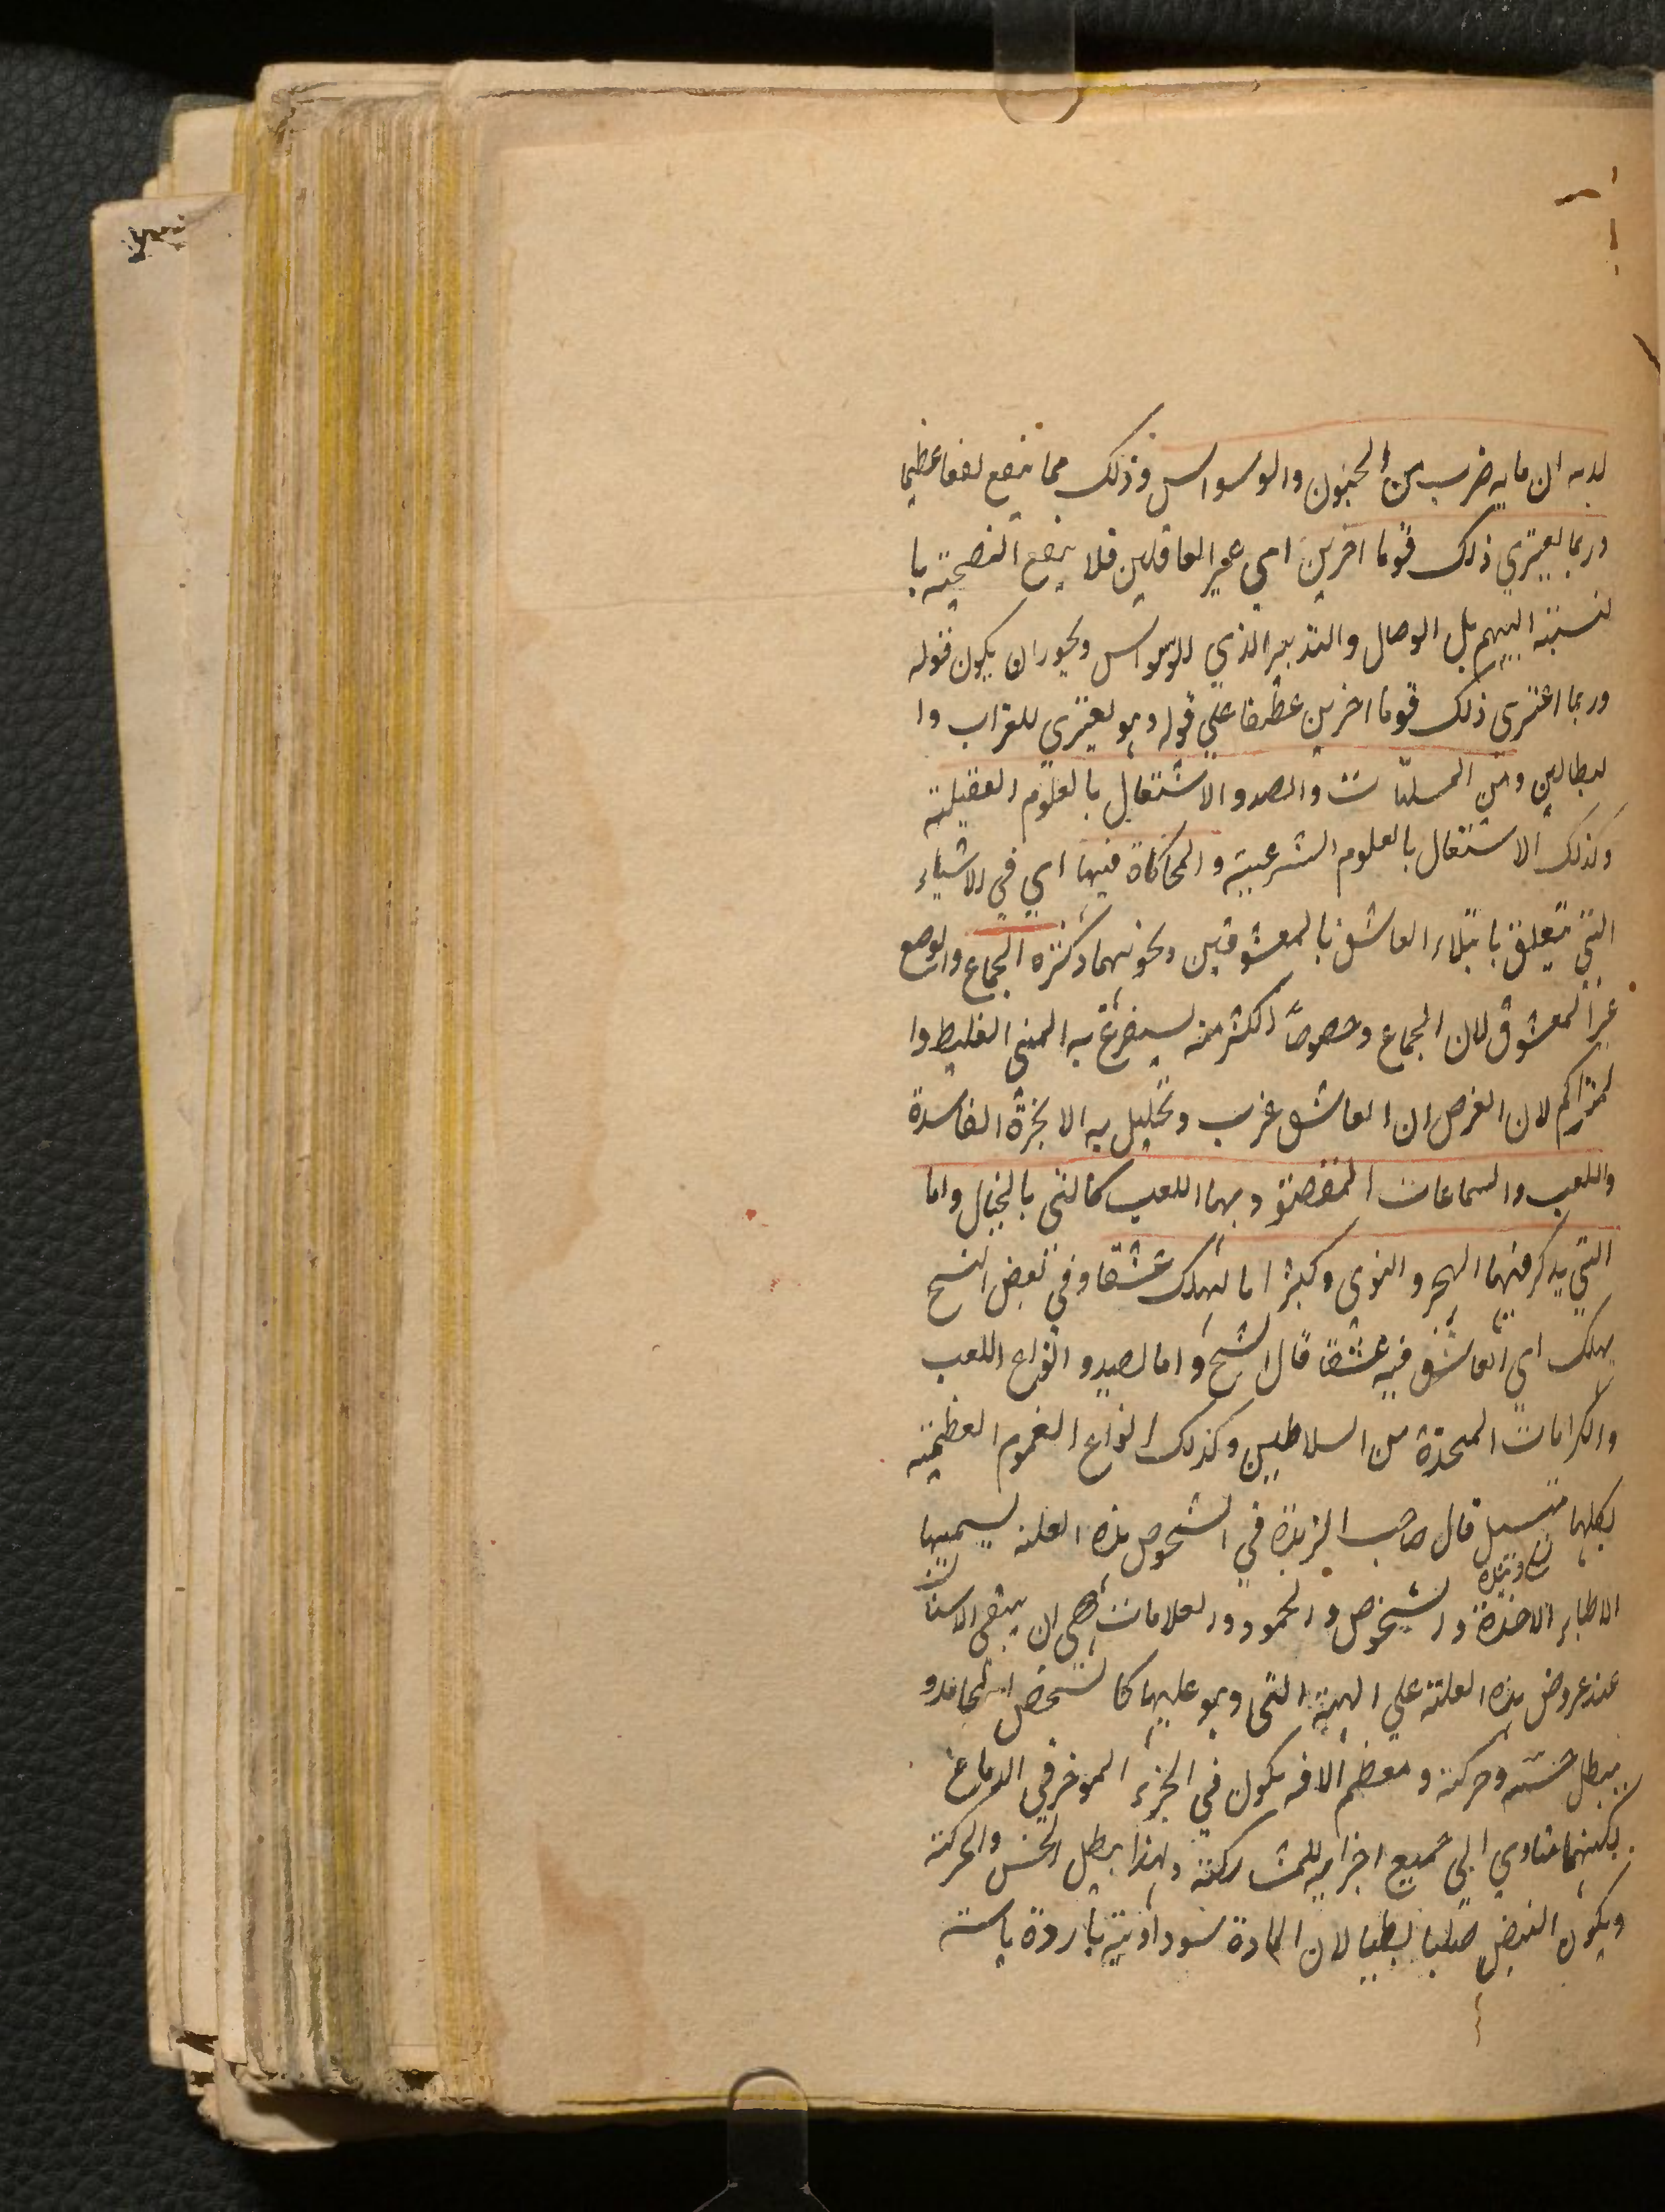 لديه ان ما به ضرب من الجنون والوسواس وذلك مما ينفع نفعا عظيما
وربما يعتري ذلك قوما اخرين اي غير العاقلين فلا ينفع النصيحة با
لنسبة اليهم بل الوصال والتدبير الذي للوسواس ويجوز ان يكون قوله
وربما اعترى ذلك قوما اخرين عطفا على قوله وهو يعتري للعزاب وا
لبطالين ومن المسليات والصد والاشتغال بالعلوم العقيلة
وكذلك الاشتغال بالعلوم الشرعية والمحاكاة فيها اي في الاشياء
التي يتعلق بابتلاء العاشق بالمعشوقين ونحو نهما وكثرة الجماع والوصع
غير المعشوق لان الجماع وخصوصا الكثر منه يستفرغ به المني الغليظ وا
لمتراكم لان الغرض ان العاشق عزب وتحليل به الابخرة الفاسدة
واللعب والسماعات المفصتو وبهما اللعب كالتي بالخيال واما
التي يذكر فيها الهجر والنوى وكثيرا ما تهلك عشقا وفي بعض النسخ
يهلك اي العاشق فيه عشقا قال الشيخ واما الصيد وانواع اللعب
والكرامات المتحدة من السلاطين وكذلك انواع الغموم العظيمة
بكلها متسل قال صاحب الزبدة في الشخوص هذه العلة يسميها
الاطباء الاخذة والشخوص والجمود والعلامات هي ان يبقى الانسان
عند عروض هذه العلة على الهيئة التي وهو عليها كالشخص الجامد و
يبطل حسه وحركته ومعظم الافه يكون في الجزء الموخر في الدماغ
لكنها متاوي الى جميع اجزايه للمشاركة ولهذا يبطل الحس والحركة
ويكون النبض صلبا بطيا لان المادة سوداوية باردة يابسته